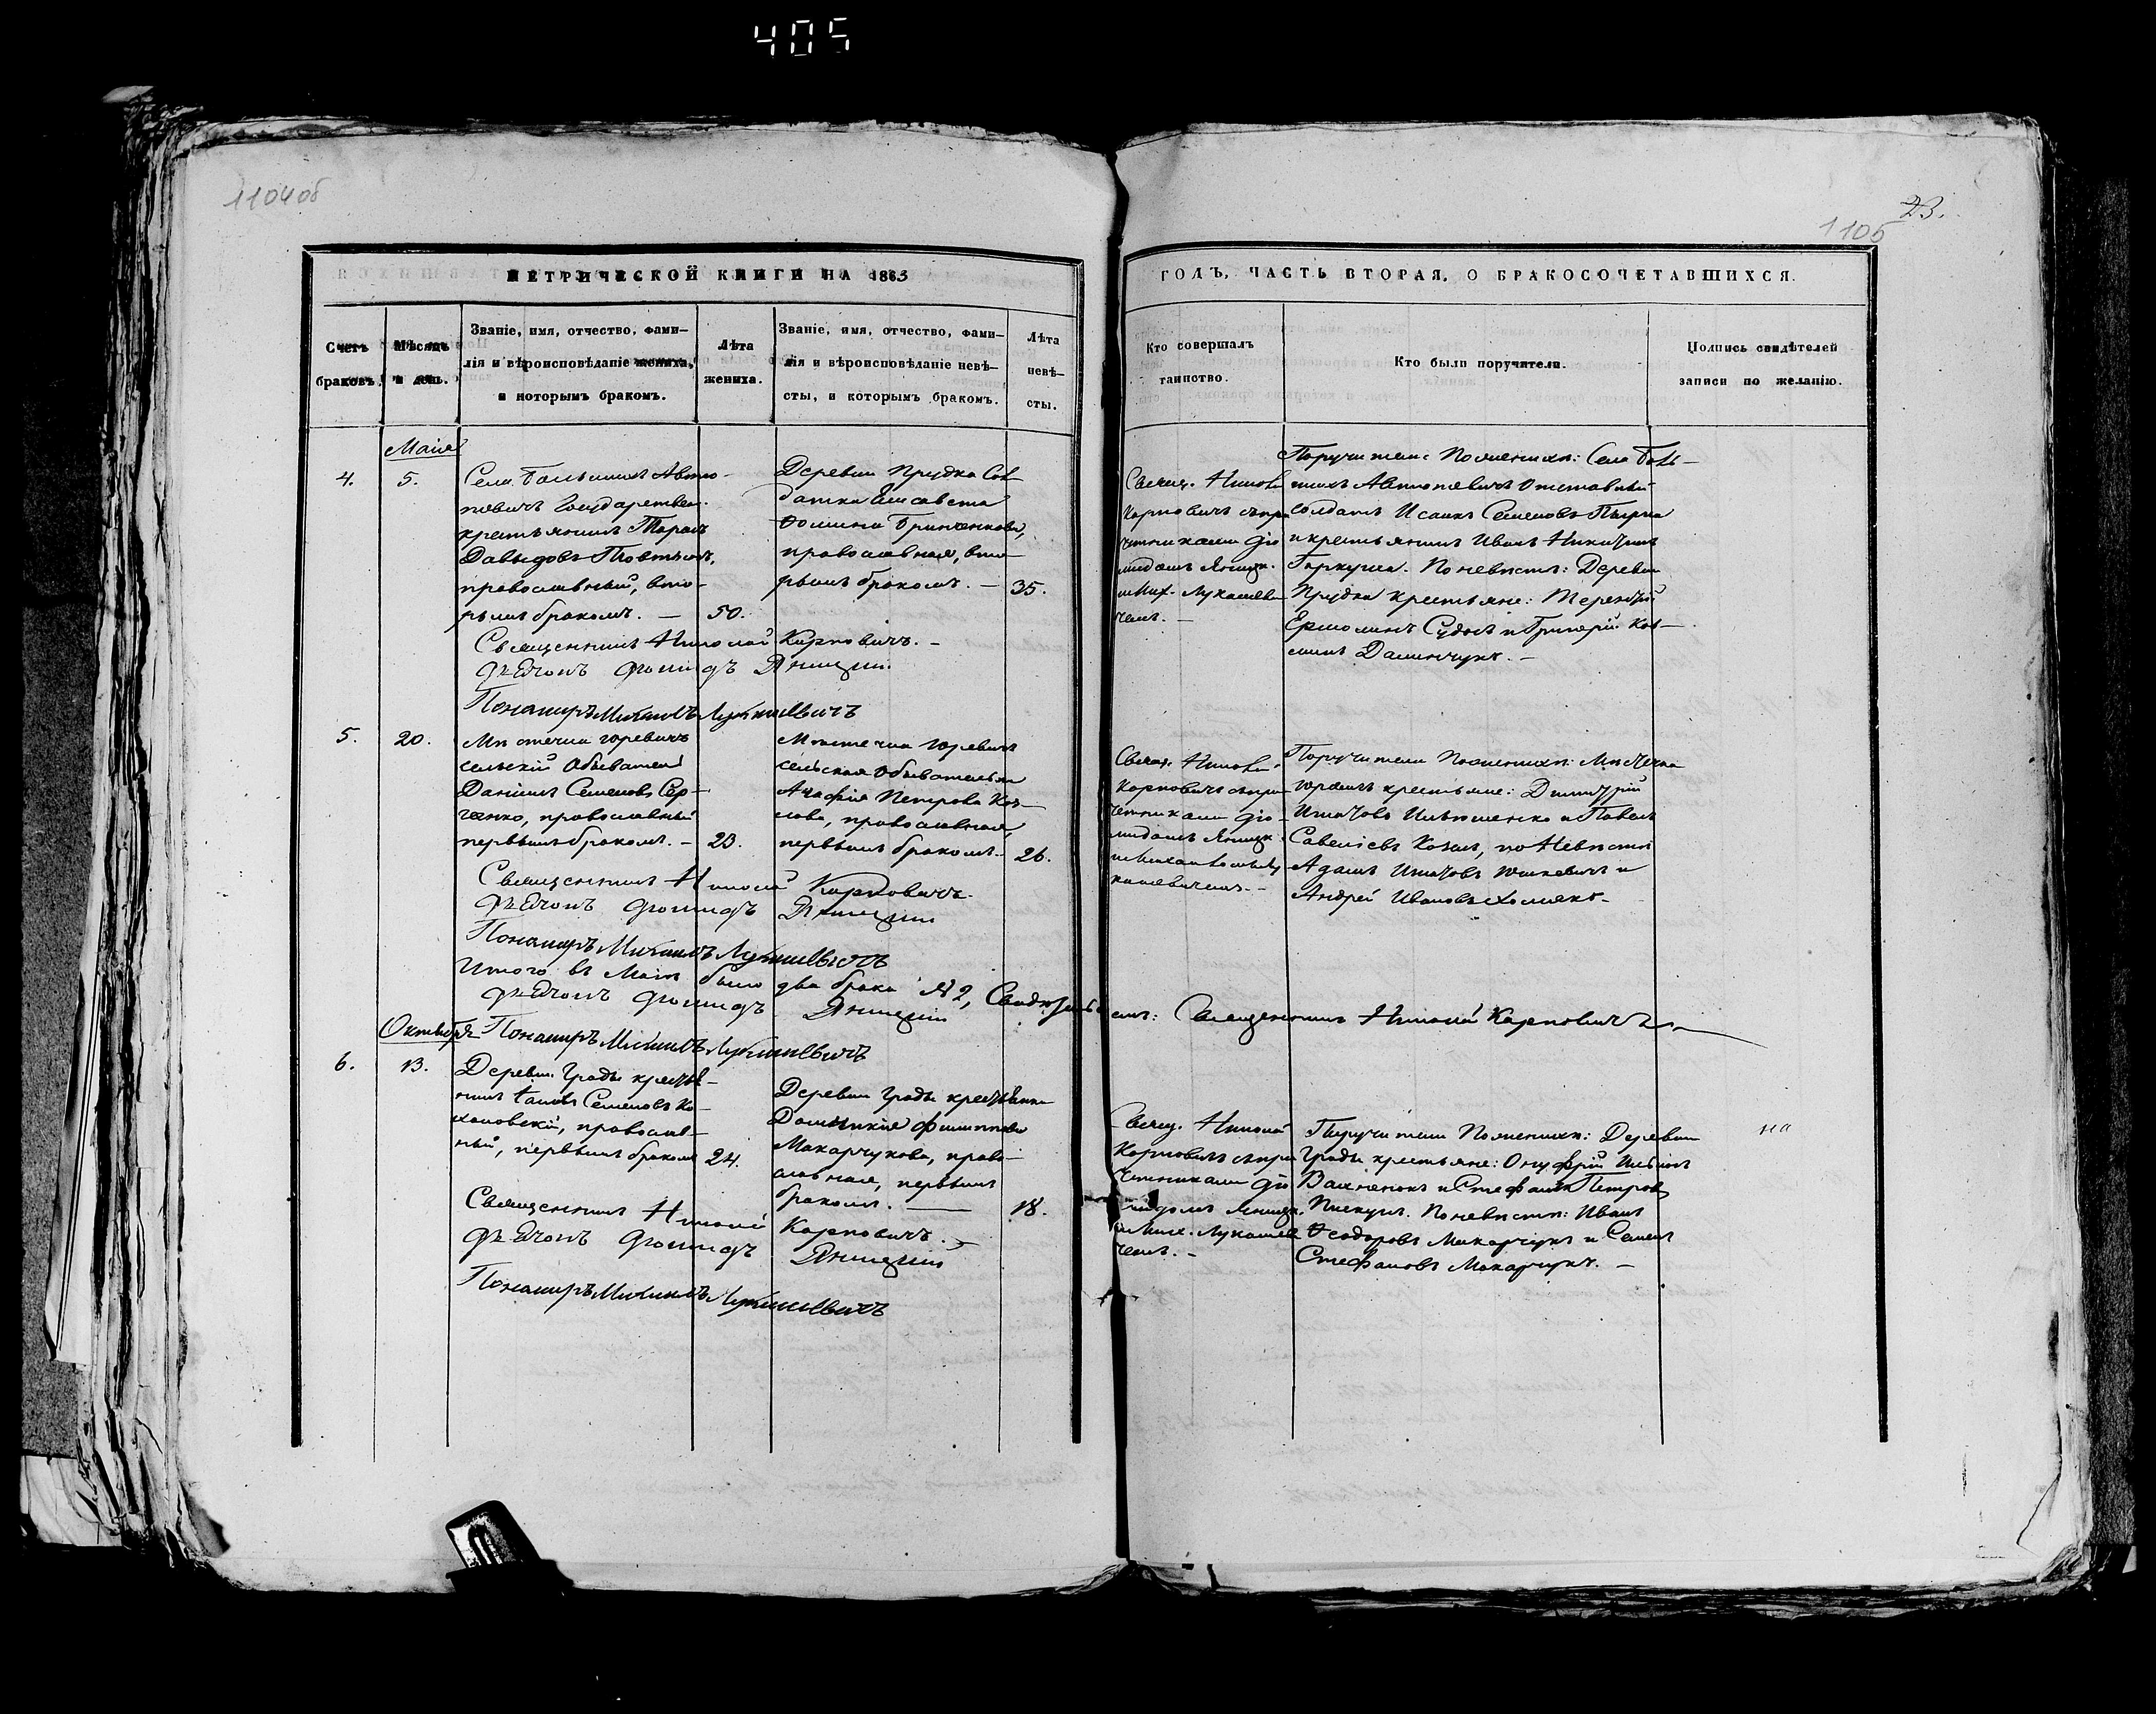 405
1104об
23.
1105
МЕТРИЧЕСКОЙ КНИГИ НА 1863
ГОДЪ, ЧАСТЬ ВТОРАЯ, О БРАКОСОЧЕТАВШИХСЯ.
Счетъ браковъ.
Мѣсяцъ и день.
Званіе, имя, отчество, фами-
лія и вѣроисповѣданіе жениха,
и которымъ бракомъ.
Лѣта
жениха.
Званіе, имя, отчество, фами-
лія и вѣроисповѣданіе невѣ-
сты, и которымъ бракомъ.
Лѣта
невѣ-
сты.
Кто совершалъ
таинство.
Кто были поручители.
Подпись свидѣтелей
записи по желанію.
Маія
4.
5.
Села Большихъ Авто-
невичъ Государствен.
крестьянинъ Тарасъ
Давыдовъ
православный, вто-
рымъ бракомъ. —
50.
Деревни Прудка Сол
датка Елисавета
Фомина Гринченкова,
православная, вто-
рымъ бракомъ. —
35.
Свящ. Николай
Карповичъ съ при
четниками Дио
мидомъ Яницк.
и Мих. Лукашеви
чемъ. —
Поручители По женихѣ: Села Боль-
шихъ Автоневичъ отставный
солдатъ Исаакъ Семеновъ
и крестьянинъ Иванъ Никитинъ
Гаркуша. По невѣстѣ: Деревни
Прудка крестьяне: Терентій
Ермолинъ Судасъ и Григорій Коз-
минъ Даминчукъ. —
Священникъ Николай Карповичъ. —
Дьячокъ Діомидъ Яницкій
Пономарь Михаилъ Лукашевичъ
5.
20.
Мѣстечка Юревичъ
сельскій Обыватель
Даніилъ Семеновъ Сер-
ченко, православный
первымъ бракомъ. —
23.
Мѣстечка Юревичъ
сельская обывательна
Агафія Петрова Коз-
лова, православная,
первымъ бракомъ. —
26.
Свящ. Николай
Карповичъ съ при
четниками Діо-
мидомъ Яницк.
и Михаиломъ Лу
кашевичемъ. —
Поручители По женихѣ: Мѣстечка
Юревичъ крестьяне: Димитрій
Игнатовъ Ильюшенко и Павелъ
Савеліевъ Козелъ, по Невѣстѣ
Адамъ Игнатовъ Юшкевичъ и
Андрей Ивановъ Хомякъ. —
Священникъ Николай Карповичъ.
Дьячокъ Діомидъ Яницкій
Пономарь Михаилъ Лукашевичъ
Итого въ Маіѣ было два брака № 2, Свидѣтельствуемъ: Священникъ Николай Карповичъ
Дьячокъ Діомидъ Яницкій
Пономарь Михаилъ Лукашевичъ
Октября
6.
13.
Деревни Грады крестья-
нинъ Семеновъ Ко-
хановскій, православ-
ный, первымъ бракомъ
24.
Деревни Грады крестьянка
Домникія Филиппова
Макарчукова, право-
славная, первымъ
бракомъ. —
18.
Свящ. Николай
Карповичъ съ при
четниками Діо
мидомъ Яницк.
и Мих. Лукашеви
чемъ. —
Поручители По женихѣ: Деревни
Грады крестьяне: Онуфрій
и Стефанъ Петровъ
По невѣстѣ: Иванъ
Ѳеодоровъ Макарчукъ и Семенъ
Стефановъ Макарчукъ. —
на
Священникъ Николай Карповичъ. —
Дьячокъ Діомидъ Яницкій
Пономарь Михаилъ Лукашевичъ